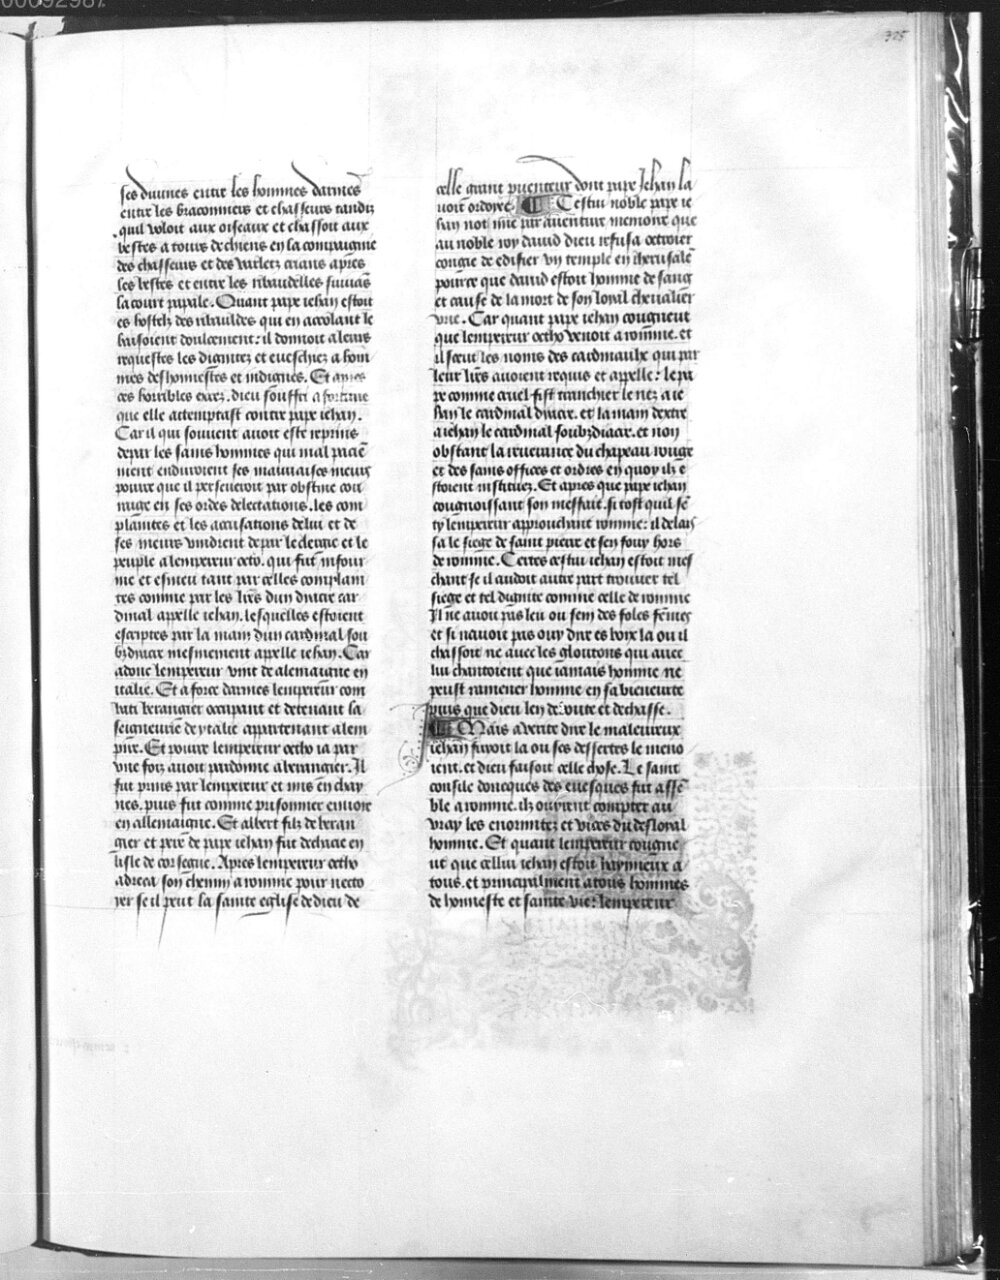 00092987
325
ses diuines entre les hommes darmes
entre les braconniers et chasseurs tandiz
quil voloit aux oiseaux et chassoit aux
bestes a tours de chiens en la compaignie
des chasseurs et des varletz crians apres
les bestes et entre les ribaudelles suiuās
la court papale. Quant pape iehan estoit
es hostelz des ribauldes qui en acolant le
baisoient doulcement: il donnoit a leurs
requestes les dignitez et eueschiez a hom
mes deshonnestes et indignes. Et apres
ces horribles excez. dieu souffri a fortune
que elle attemptast contre pape iehan.
Car il qui souuent auoit este reprins
depar les sains hommes qui mal paciē
ment enduroient ses mauuaises meurs
pource que il perseueroit par obstine cou
rage en ses ordes delectations. les com
plaintes et les accusations de lui et de
ses meurs vindrent depar le clergie et le
peuple a lempereur octo. qui fut infour
me et esmeu tant par celles complain
tes comme par les lr̄es dun diacre car
dinal appelle iehan. lesquelles estoient
escriptes par la main dun cardinal sou
bzdiacre mesmement apelle iehan. Car
adonc lempereur vint de alemaigne en
italie. Et a force darmes lempereur com
bati berangier occupant et detenant la
seigneurie de ytalie appartenant a lem
pire. Et pource lempereur octho ia par
vne foiz auoit pardonne a berangier. Il
fut prins par lempereur et mis en chay
nes. puis fut comme prisonnier enuoie
en allemaigne. Et albert filz de beran
gier et pere de pape iehan fut dechacie en
lisle de corsegue. Apres lempereur octho
adreca son chemin a romme pour necto
ier se il peut la sainte eglise de dieu de
celle grant puenteur dont pape Jehan la
uoit ordoye. Cestui noble pape ie
han not mie par auenture memoire que
au noble roy dauid dieu refusa octroier
congie de edifier vn temple en iherusalē
pource que dauid estoit homme de sang
et cause de la mort de son loyal cheualier
vrie. Car quant pape iehan congneut
que lempereur octho venoit a romme. et
il sceut les noms des cardinaulx qui par
leur lr̄es auoient requis et appelle: le pa
pe comme cruel fist tranchier le nez a ie
han le cardinal diacre. et la main dextre
a iehan le cardinal soubzdiacre. et non
obstant la reuerance du chapeau rouge
et des sains offices et ordres en quoy ilz e
stoient instituez. Et apres que pape iehan
congnoissant son meffait. si tost quil sē
ty lempereur approuchant romme: il delais
sa le siege de saint pierre et sen fouy hors
de romme. Certes cestui iehan estoit mes
chant se il cuidoit autre part trouuer tel
siege et tel dignite comme celle de romme
Il ne auoit pas leu ou sein des foles fēmes
et si nauoit pas ouy dire es bois la ou il
chassoit ne auec les gloutons qui auec
lui chantoient que iamais homme ne
peust ramener homme en sa bieneurte
puis que dieu len deboute et dechasse.
Mais a verite dire le maleureux
iehan fuyoit la ou ses dessertes le meno
ient. et dieu faisoit celle chose. Le saint
consile doncques des euesques fut assē
ble a romme. ilz ouyrent compter au
vray les enormitez et vices du desloyal
homme. Et quant lempereur congne
ut que cellui iehan estoit haynneux a
tous. et principalment a tous hommes
de honneste et sainte vie: lempereur